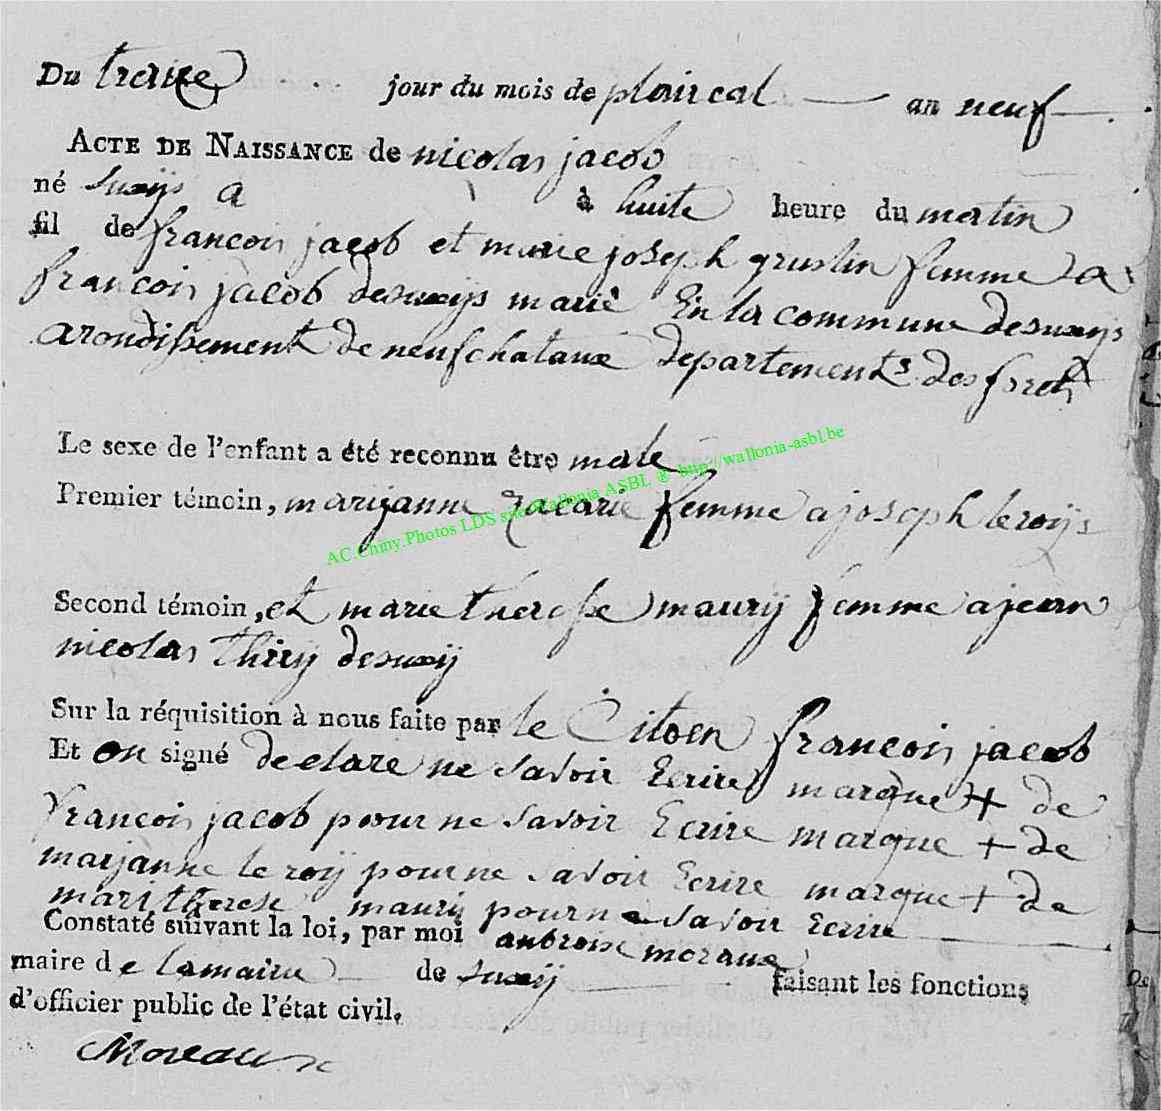 Du treize jour du mois de plaireal an neuf
ACTE DE NAISSANCE de nicolas jacob
né suxÿs a à huite heure du mattin
fil de francois jacob et marie joseph gruslin femme a
francois jacob desuxÿs marié En la commune desuxÿs
arondissement de neufchataux departements des forets
Le sexe de l'enfant a été reconnu être male
Premier témoin, marijanne zacarie femme a joseph le roÿs
AC.Chiny.Photos LDS site Wallonia ASBL ® http://wallonia-asbl.be
Second témoin, et marie therese maurÿ femme a jean
nicolas thirÿ desuxÿ
Sur la réquisition à nous faite par le Citoen francois jacob
Et on signé declare ne savoir Ecrire marque + de
francois jacob pour ne savoir Ecrire marque + de
marjanne le roÿ pour ne savoir Ecrire marque + de
mari therese maurÿ pour ne savoir Ecrire
Constaté suivant la loi, par moi anbroise moraux
maire de lamairie de suxÿ faisant les fonctions
d'officier public de l'état civil.
Moreaux